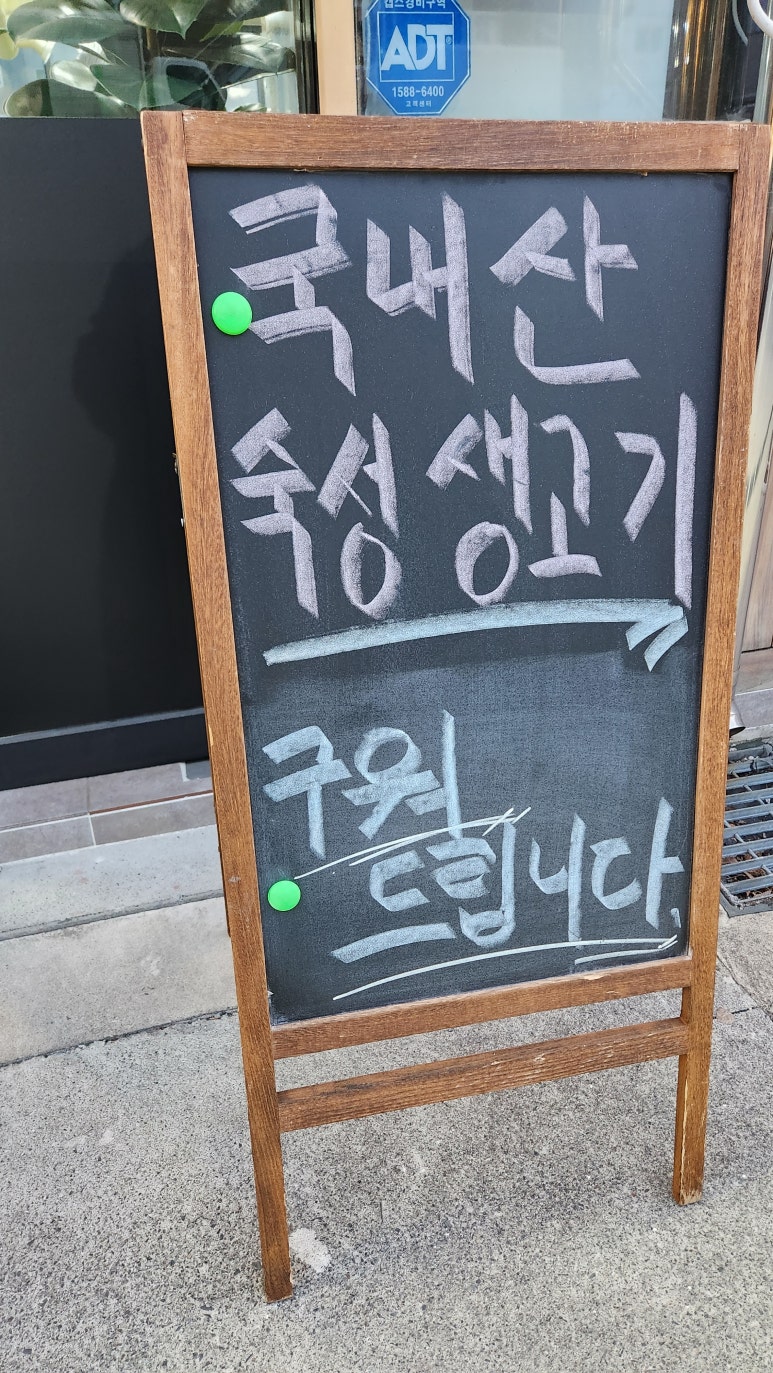 캡스경비구역
ADT
1588-6400
고객센터
국내산
숙성 생고기
구워
드립니다.